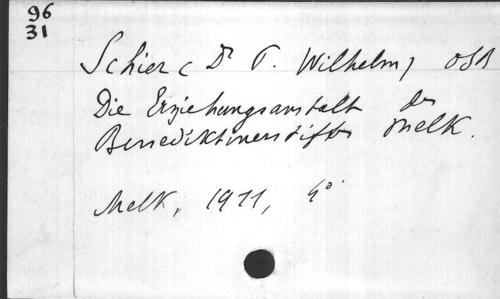 96
31
Schier (Dr P. Wilhelm) OSB
Die Erziehungsanstalt des
Benediktinerstifts Melk.
Melk, 1911, 4°.